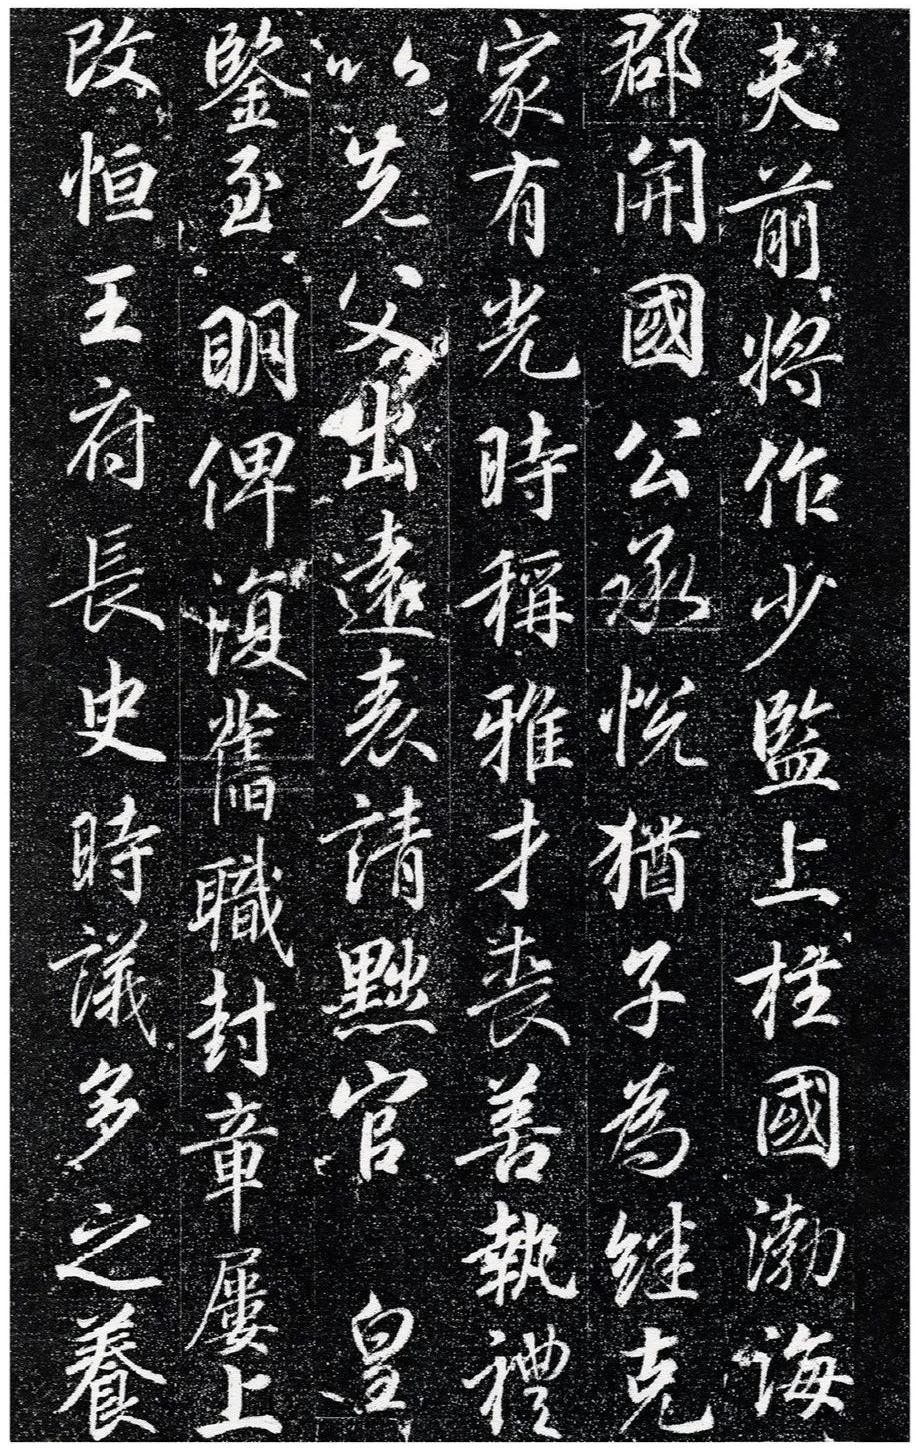 夫前將作少監上柱國渤海
郡開國公承悅猶子為繼克
家有光時稱雅才喪善執禮
以先父出遠表請黜官皇
鑒至明俾復舊職封章屢上
改恒王府長史時議多之養